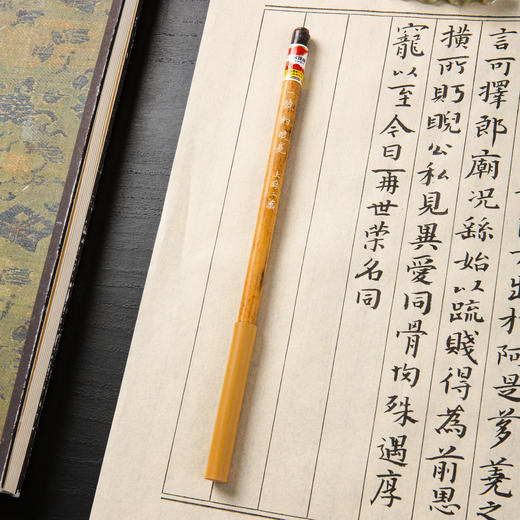 出於阿是芻蕘之
言可擇郎廟況繇始以疏賤得為前恩
橫所盱睨公私見異愛同骨肉殊遇厚
寵以至今日再世榮名同